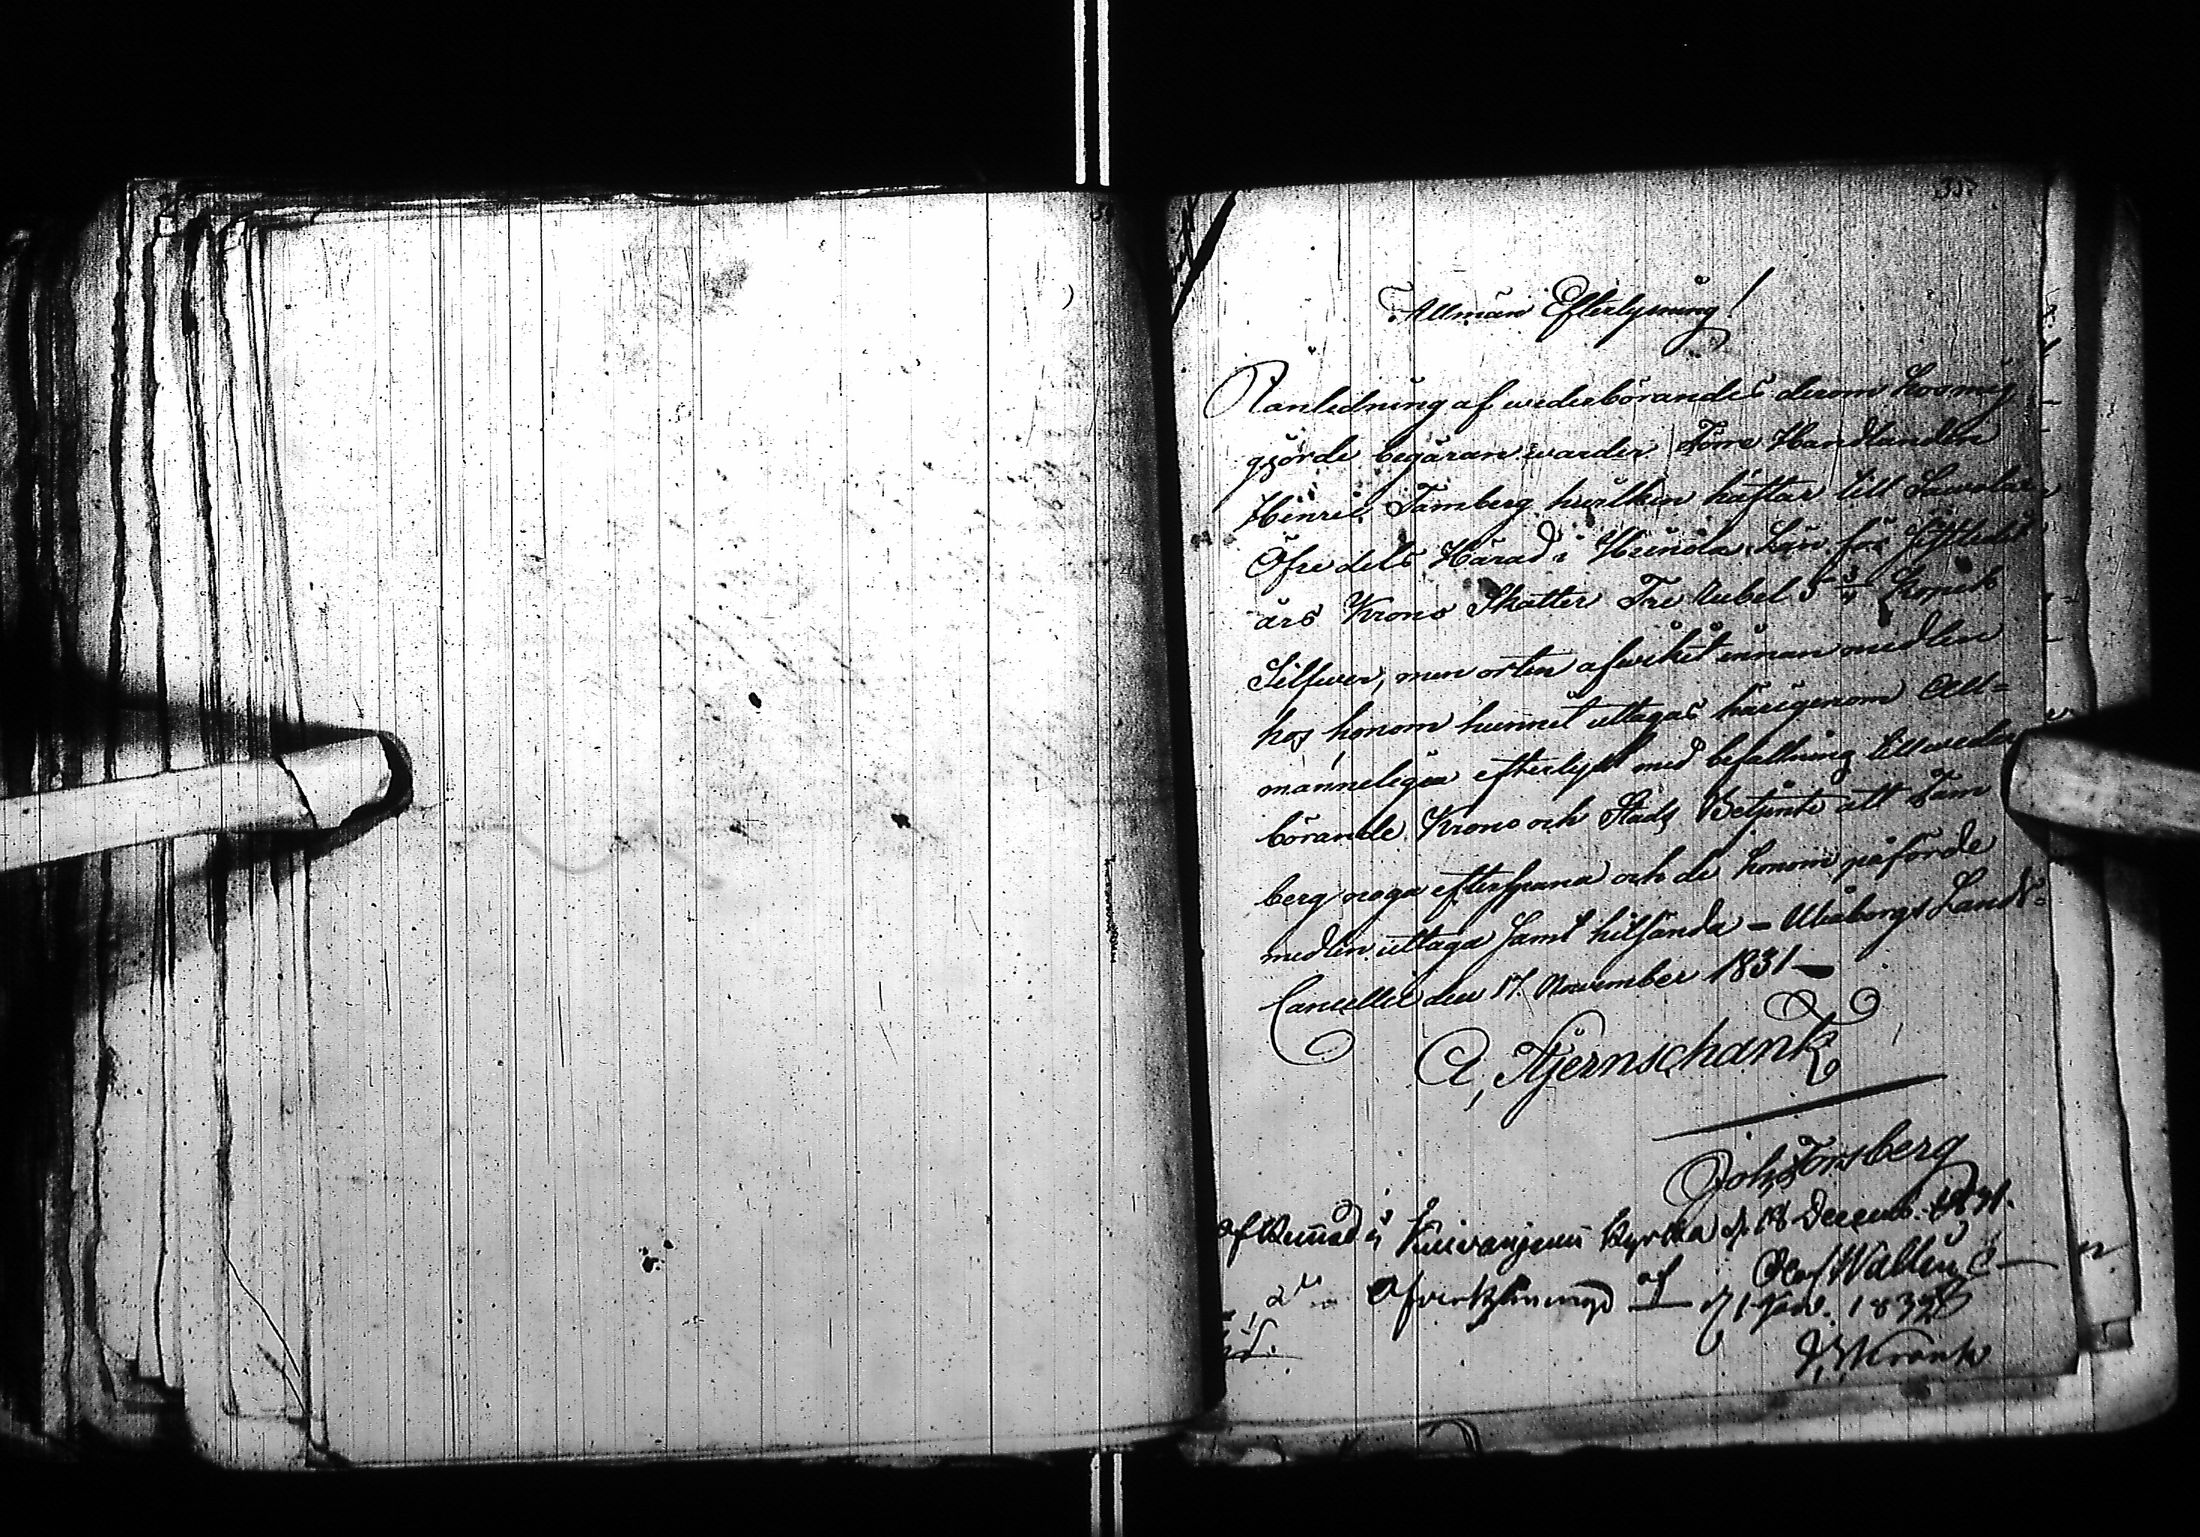 357
Allmän Efterlysning!
På anledning af wederbörandes derom hos mig
gjorde begäran warder Förre Handlanden
Henric Tamberg hwilken häftar till Sawolax
Öfre dels Härad i Heinola Län för sistledit
års Krono Skatter Tre Rubel 5 3/4 Kopek
Silfwer, men orten afwikit innan medlen
hos honom hunnit uttagas härigenom All-
männeligen efterlyst med befallning till weder
börande Krono och Stads Betjente att Tam
berg noga efterspana och de honom påförde
medlen uttaga samt hitsända – Uleåborgs Lands-
Cancellie den 17 November 1831 –
A, Stjernschantz
Joh. Forsberg
Kuivaniemi Kyrka d. 18 Decemb. 1831.
Olof Wallin
af d 1 Jan. 1832